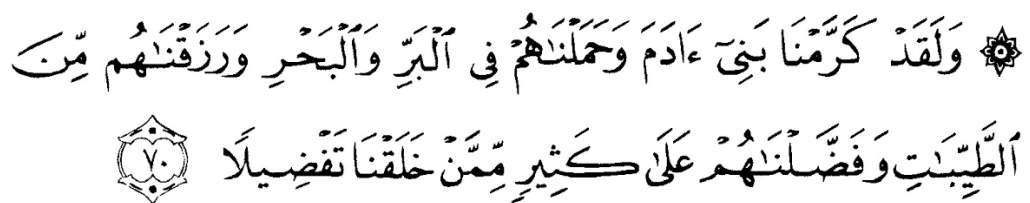 ۞ وَلَقَدْ كَرَّمْنَا بَنِىٓ ءَادَمَ وَحَمَلْنَٰهُمْ فِى ٱلْبَرِّ وَٱلْبَحْرِ وَرَزَقْنَٰهُم مِّنَ
ٱلطَّيِّبَٰتِ وَفَضَّلْنَٰهُمْ عَلَىٰ كَثِيرٍ مِّمَّنْ خَلَقْنَا تَفْضِيلًا ٧٠